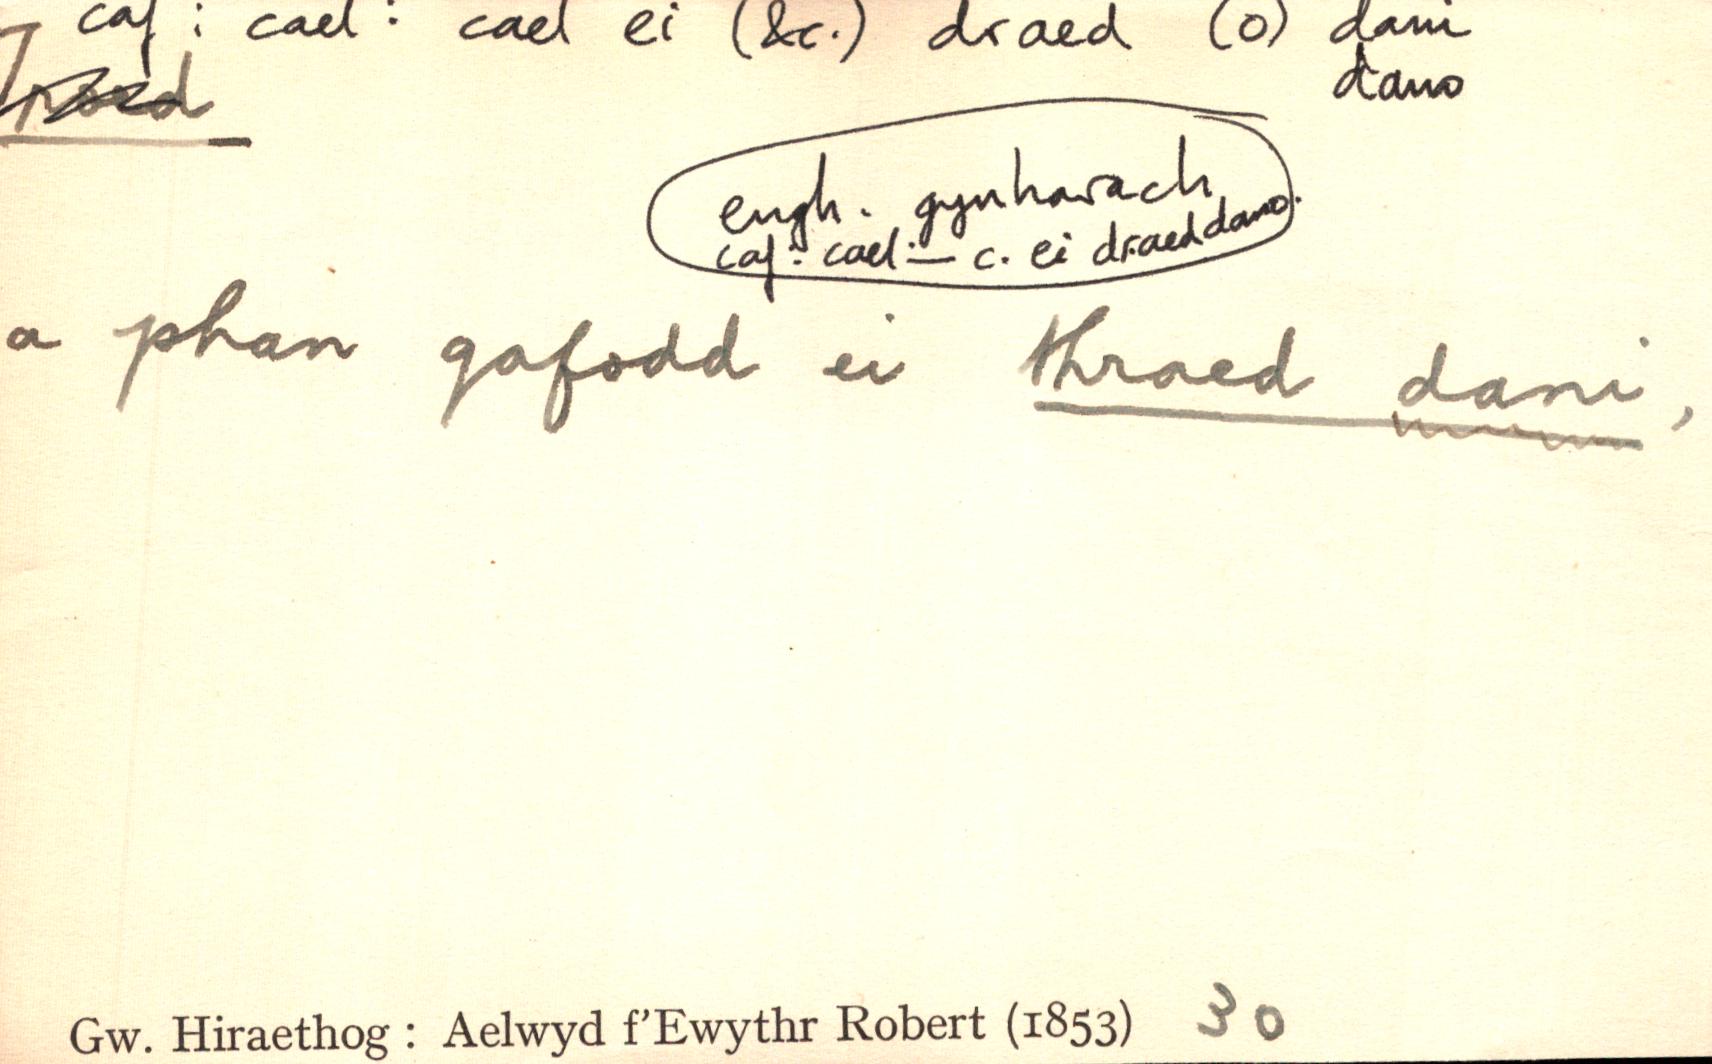 caf : cael : cael ei (&c.) draed (o) dani
dano
Troed
engh. gynharach
caf : cael :— c. ei draed dano.
a phan gafodd ei thraed dani,
Gw. Hiraethog : Aelwyd f'Ewythr Robert (1853) 30